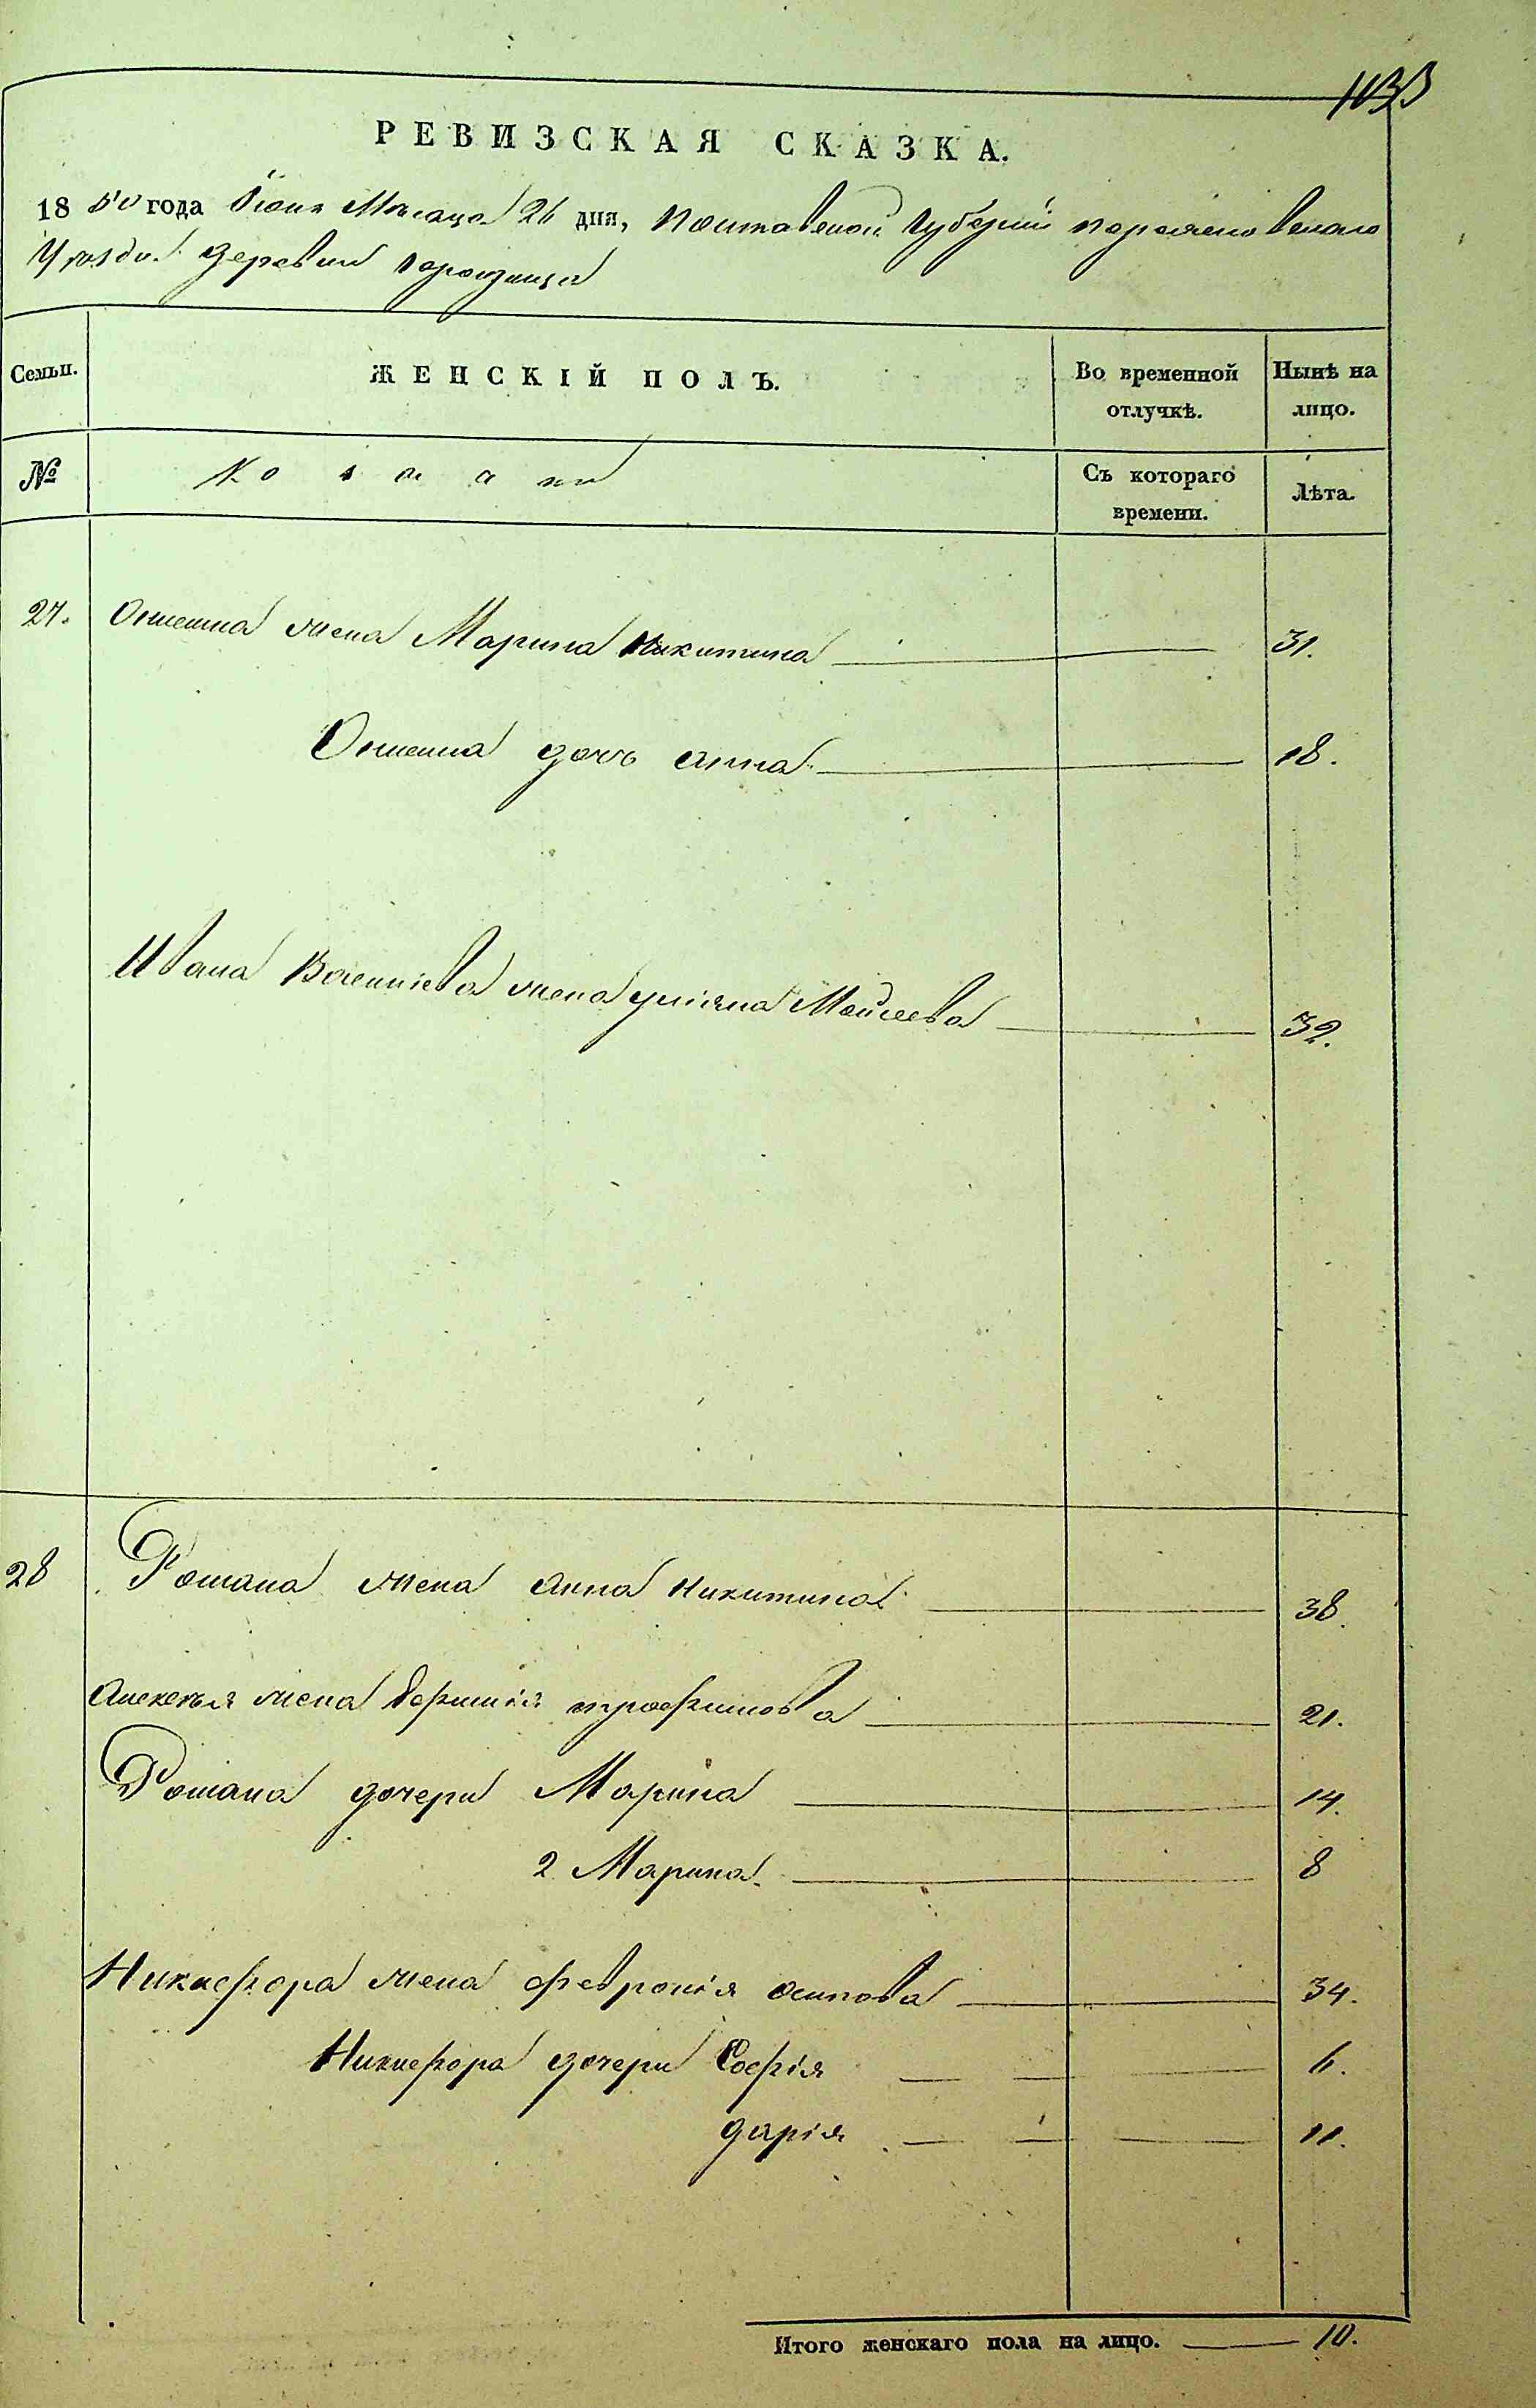 1133
РЕВИЗСКАЯ СКАЗКА.
1850 года Іюня Мѣсяца 26 дня, Полтавской Губерніи
Уѣзда деревни
Семьи.
ЖЕНСКІЙ ПОЛЪ.
Во временной
отлучкѣ.
Нынѣ на
лицо.
№
Козаки
Съ котораго
времени.
Лѣта.
27. жена Марина Никитина 31.
дочь Анна 18.
Ивана жена Уліяна Моисеева 32.
28 Романа жена Анна Никитина 38.
Алексея жена Трофимова 21.
Романа дочери Марина 14.
2 Марина 8
Никифора жена Февронія Осипова 34.
Никифора дочери Софія 6.
Дарія 11.
Итого женскаго пола на лицо. 10.